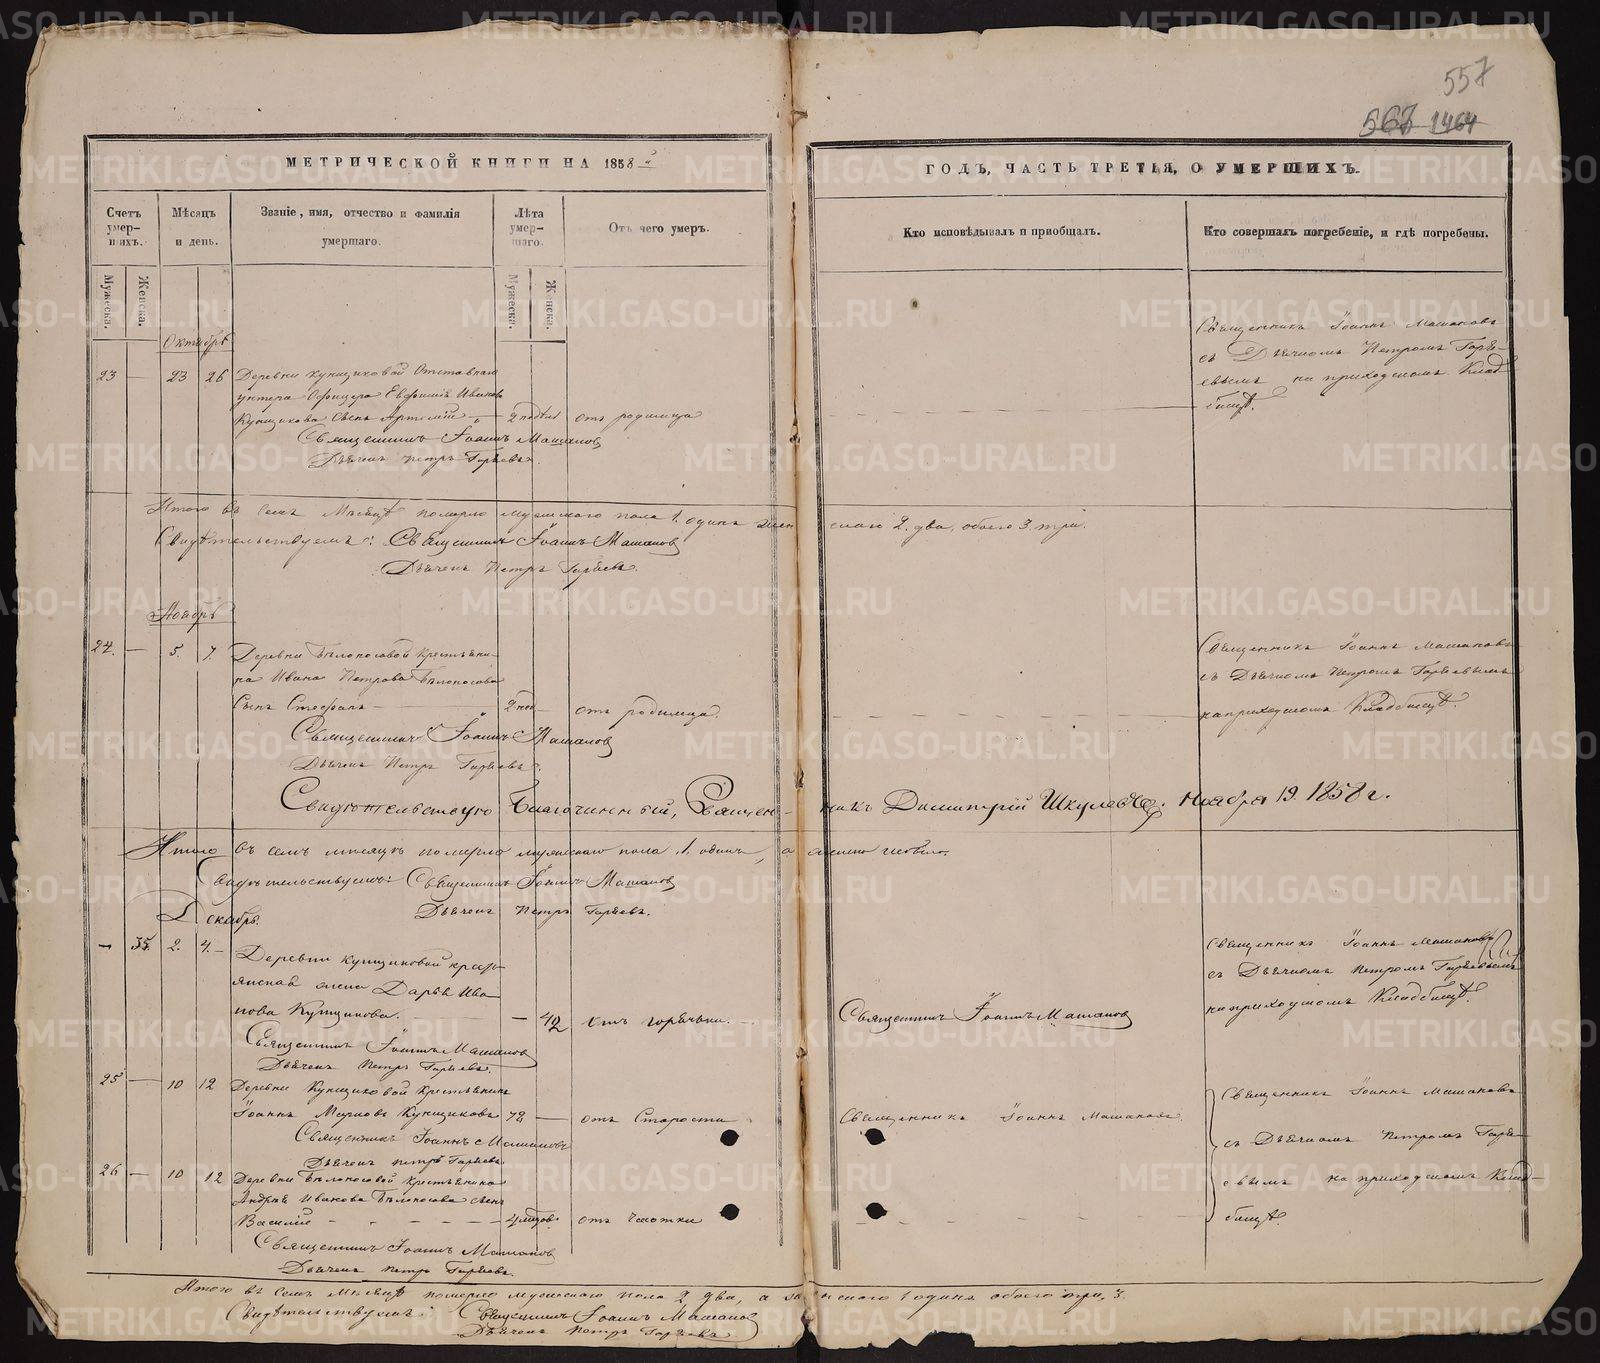 557
567 1464
МЕТРИЧЕСКОЙ КНИГИ НА 1858й
ГОДЪ, ЧАСТЬ ТРЕТІЯ, О УМЕРШИХЪ.
Счетъ умер-шихъ.
Мѣсяцъ и день.
Званіе, имя, отчество и фамилія умершаго.
Лѣта умер-шаго.
Отъ чего умеръ.
Кто исповѣдывалъ и приобщалъ.
Кто совершалъ погребеніе, и гдѣ погребены.
Мужеска.
Женска.
Мужеска.
Женска.
Октябрь
23 — 23 26 Деревни Купщиковой Отставнаго
унтера Офицера Евфимія Иванова
Купщикова сынъ Артемій — 2 недѣли отъ родимца
Священникъ Іоаннъ Машановъ
Дьячекъ Петръ Гаряевъ.
Священникъ Іоаннъ Машановъ
съ Дьячкомъ Петромъ Гаря-
евымъ на приходскомъ Клад-
бищѣ.
Итого въ семъ Мѣсяцѣ померло мужескаго пола 1. одинъ женскаго 2. два, обоего 3. три.
Свидѣтельствуемъ: Священникъ Іоаннъ Машановъ
Дьячекъ Петръ Гаряевъ.
Ноябрь
24. — 5. 7. Деревни Бѣлоносовой Крестьяни-
на Ивана Петрова Бѣлоносова
Сынъ Стефанъ — 2 нед — отъ родимца.
Священникъ Іоаннъ Машановъ
Дьячекъ Петръ Гаряевъ.
Священникъ Іоаннъ Машановъ
съ Дьячкомъ Петромъ Гаряевымъ
на приходскомъ Кладбищѣ.
Свидѣтельствую Благочинный, Священ-никъ Димитрій Ноября 19. 1858 г.
Итого въ семъ мѣсяцѣ померло мужескаго пола 1. одинъ, а женска небыло.
Свидѣтельствуемъ: Священникъ Іоаннъ Машановъ
Дьячекъ Петръ Гаряевъ.
Декабрь.
— 35. 2. 4. Деревни Купщиковой кресть-
янская жена Дарья Ива-
нова Купщикова. — 42 отъ горячки.
Священникъ Іоаннъ Машановъ
Дьячекъ Петръ Гаряевъ.
Священникъ Іоаннъ Машановъ
Священникъ Іоаннъ Машановъ
съ Дьячкомъ Петромъ Гаряевымъ
на приходскомъ Кладбищѣ.
25 — 10 12 Деревни Купщиковой Крестьянинъ
Іоаннъ Марковъ Купщиковъ 72 — отъ Старости
Священникъ Іоаннъ Машановъ
Дьячекъ Петръ Гаряевъ
Священникъ Іоаннъ Машановъ
Священникъ Іоаннъ Машановъ
съ Дьячкомъ Петромъ Гаря-
евымъ на приходскомъ Клад-
бищѣ.
26 — 10 12 Деревни Бѣлоносовой Крестьянина
Андрея Иванова Бѣлоносова сынъ
Василій — 4 мѣсяцов. отъ чахотки
Священникъ Іоаннъ Машановъ
Дьячекъ Петръ Гаряевъ.
Итого въ семъ Мѣсяцѣ померло мужескаго пола 2 два, а женскаго 1 одинъ обоего три, 3.
Свидѣтельствуемъ: Священникъ Іоаннъ Машановъ
Дьячекъ Петръ Гаряевъ
METRIKI.GASO-URAL.RU